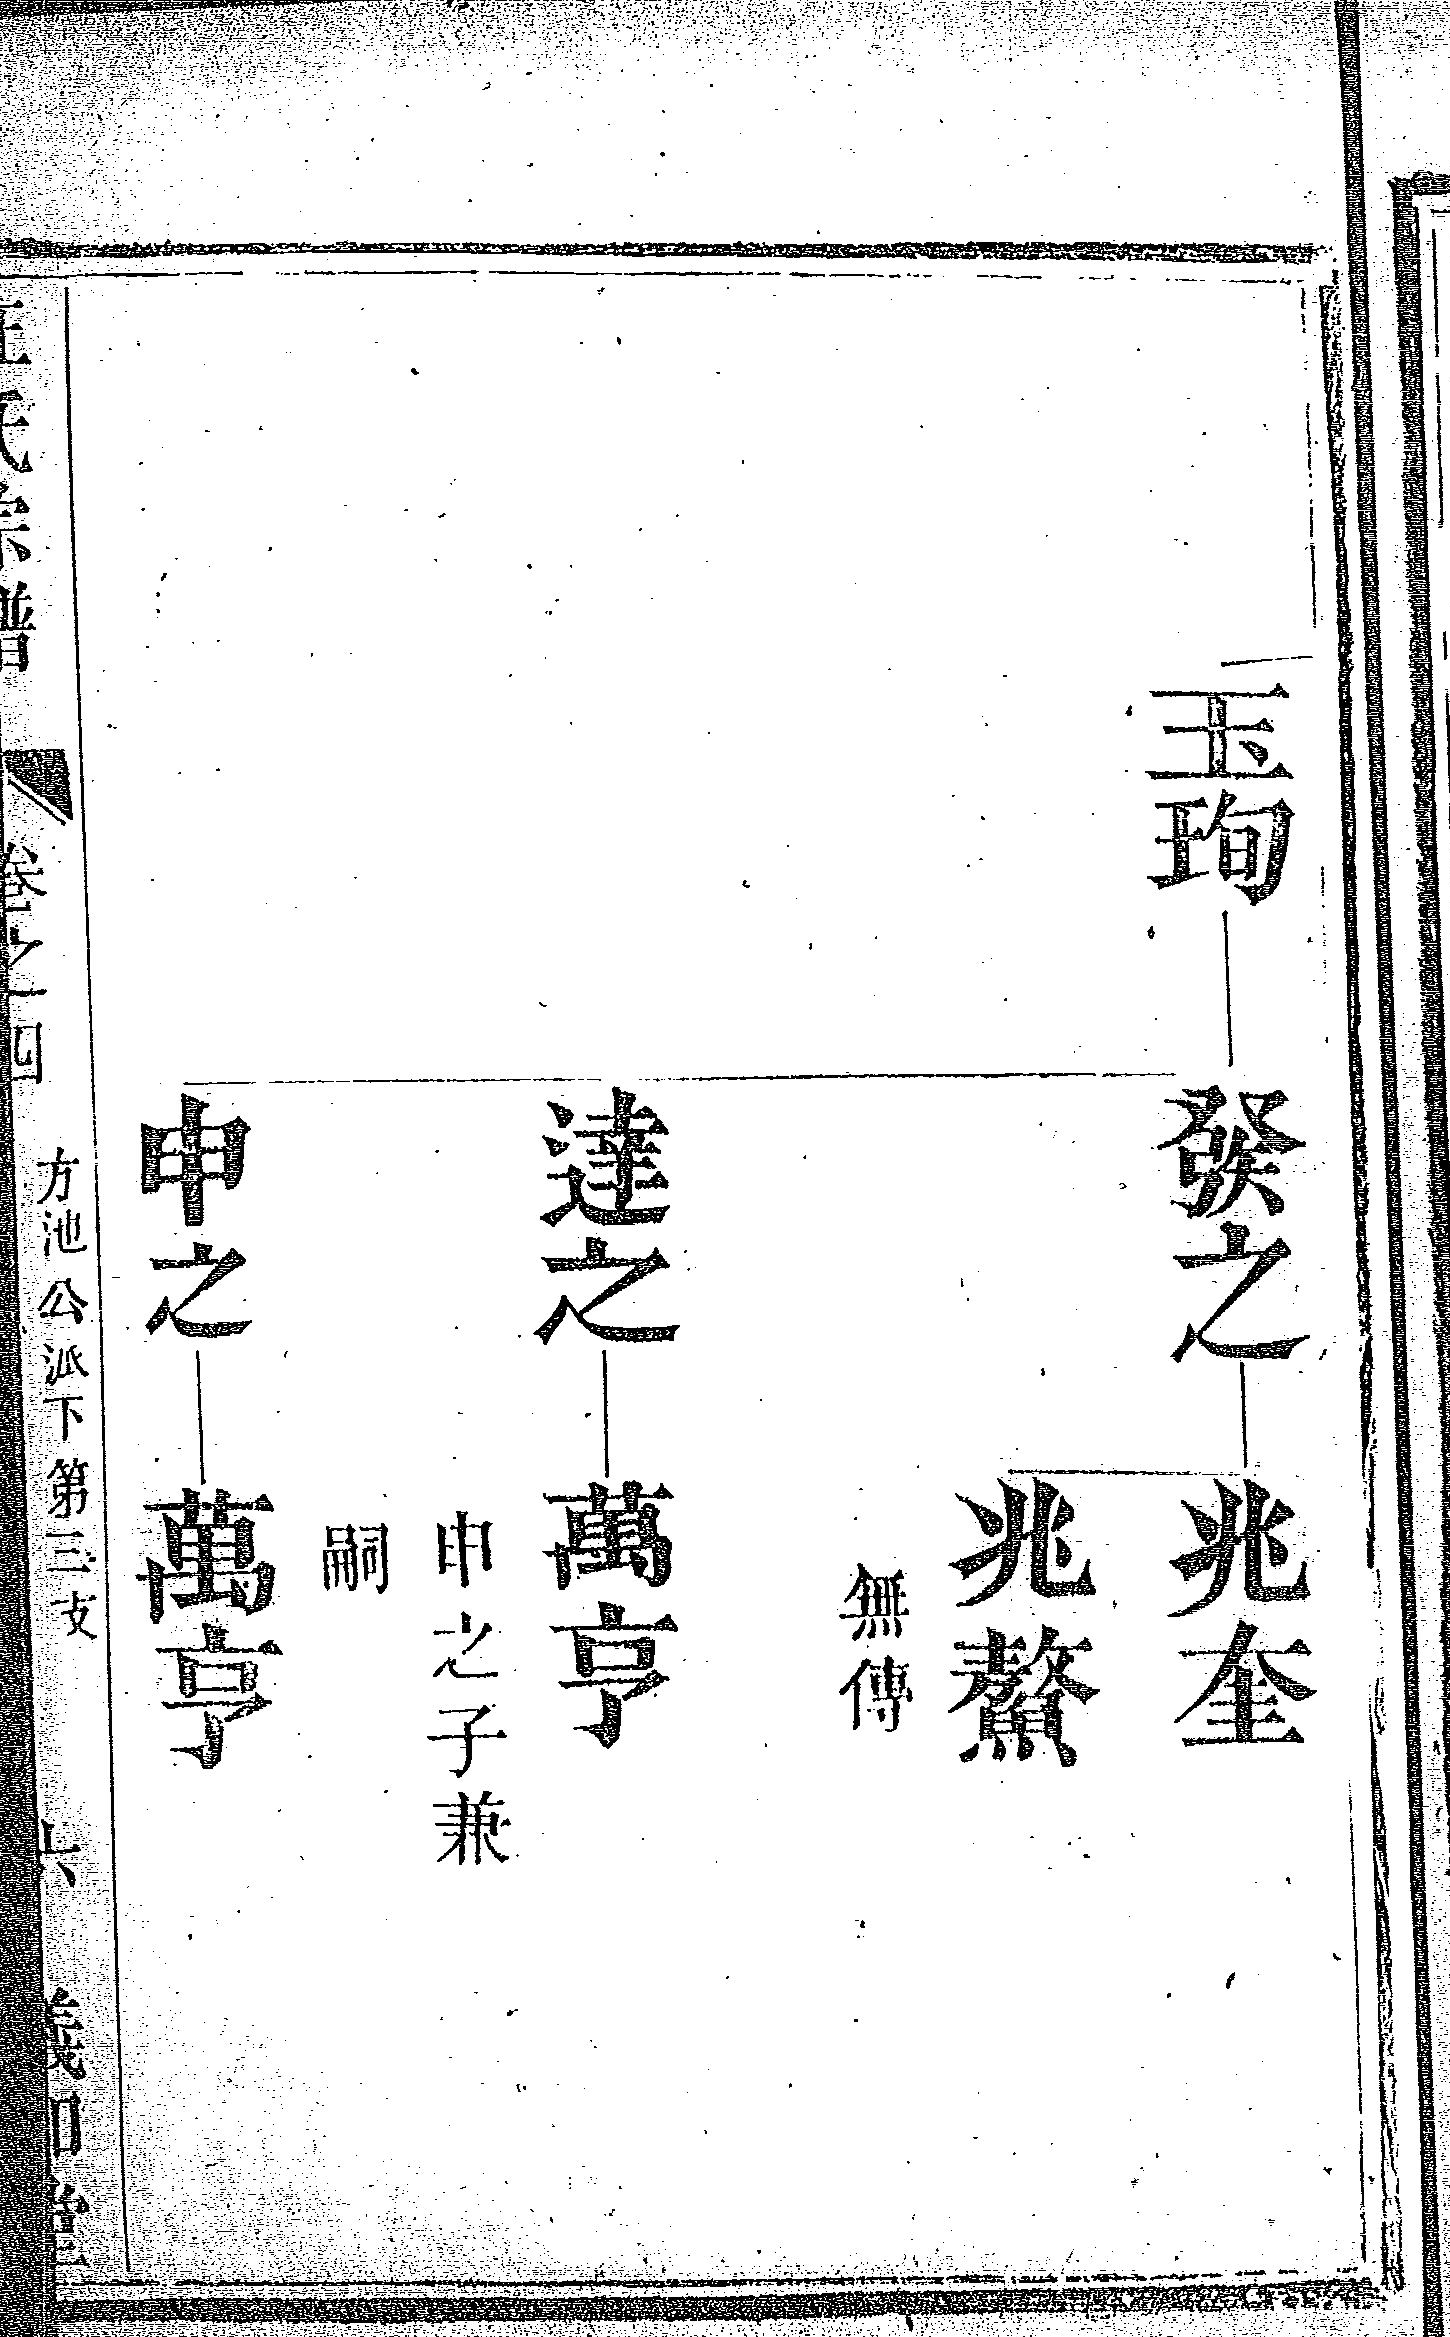 玉珣
發之
兆奎
兆鰲
無傳
達之
萬亨
申之子兼
嗣
申之
萬亨
氏宗譜
卷之四
方池公派下第三支
六